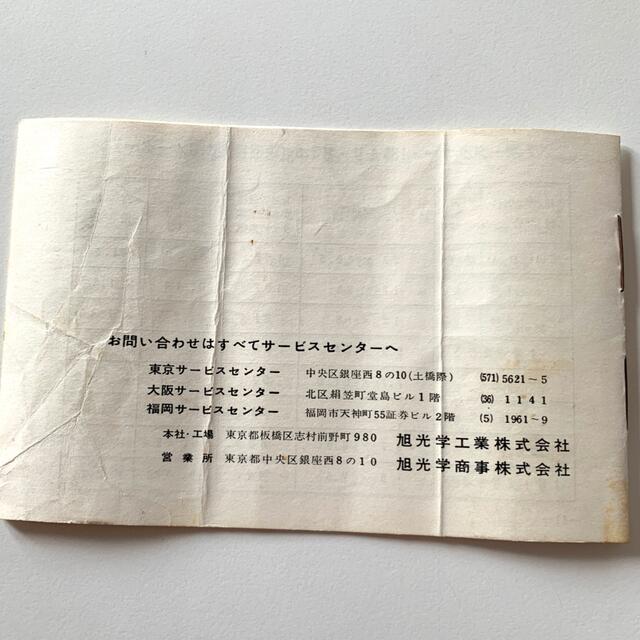 お問い合わせはすべてサービスセンターへ
東京サービスセンター 中央区銀座西8の10(土橋際) (571)5621~5
大阪サービスセンター 北区絹笠町堂島ビル1階 (36)1141
福岡サービスセンター 福岡市天神町55証券ビル2階 (5)1961~9
本社・工場 東京都板橋区志村前野町980 旭光学工業株式会社
営業所 東京都中央区銀座西8の10 旭光学商事株式会社